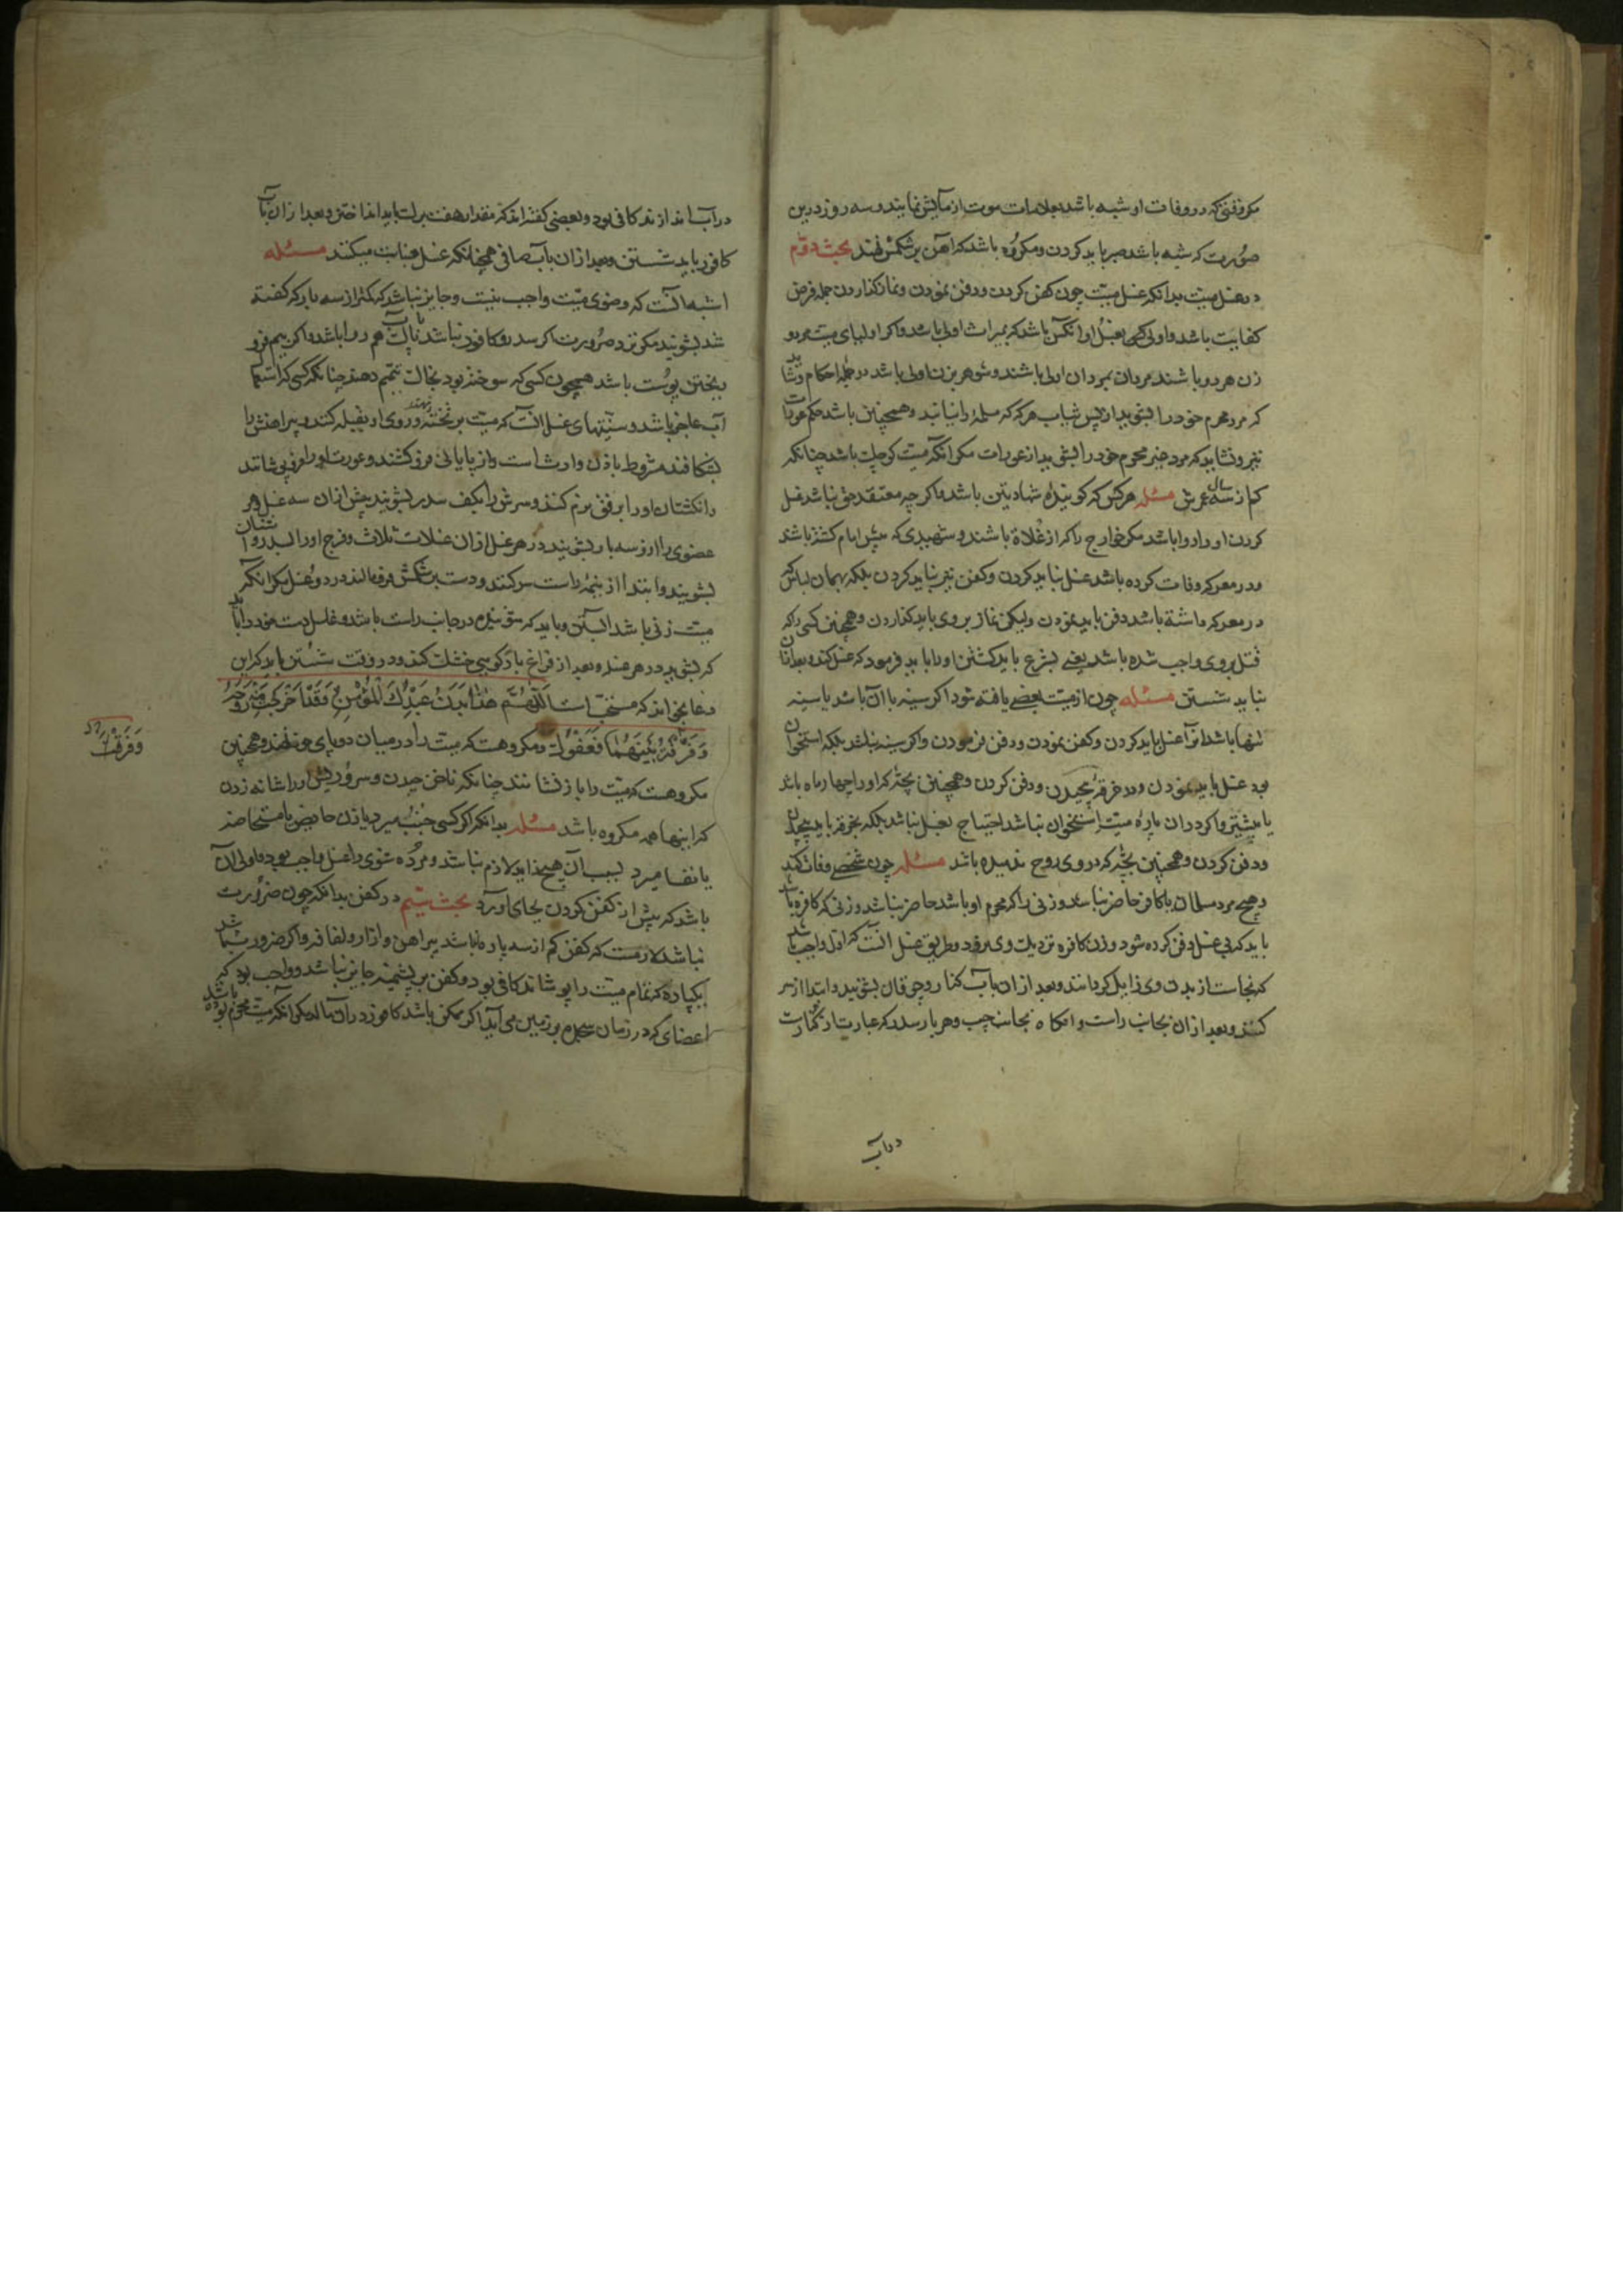 مگر وقتی که در وفات او شبه باشد بعلامات موت ازمایش نمایند و سه روز درین
صورت که شبه باشد صبر باید کردن و مکروه باشد که آهن بر شکمش نهند بحث دوم
در غسل میت بدانکه غسل میت چون کفن کردن و دفن نمودن و نماز گذاردن جمله فرض
کفایت باشد و اولی کسی بغسل او آنکس باشد که بمیراث اولی باشد و اگر اولیای میت مرد و
زن هر دو باشند مردان بمردان اولی باشند و شوهر بزن اولی باشد در جمله احکام و شاید
که مرد محرم خود را بشوید از پس ثیاب هرگه که مسلمه را نیابند و همچنین باشد حکم عورات
نیز و نشاید که مرد جز محرم خود را بشوید از عورات مگر آنکه میت کوچک باشد چنانکه
کم از سه سال عمرش مسئله هر کس که گوینده شهادتین باشد و اگرچه معتقد حق نباشد غسل
کردن او را روا باشد مگر خوارج را که از غلاة باشند و شهیدی که پیش امام کشته باشد
و در معرکه وفات کرده باشد غسل نباید کردن و کفن نیز نباید کردن بلکه بهمان لباس که
در معرکه داشته باشد دفن باید نمودن ولیکن نماز بر وی باید گذاردن و همچنین کسی را که
قتل بر وی واجب شده باشد یعنی بشرع باید کشتن او را باید فرمود که غسل کند و بعد از آن
نباید شستن مسئله چون از میت بعضی یافته شود اگر سینه با آن باشد یا سینه
تنها باشد آنرا غسل باید کردن و کفن نمودن و دفن فرمودن و اگر سینه نباشد بلکه استخوان
بود غسل باید نمودن و در خرقه پیچیدن و دفن کردن و همچنین بچه که او را چهار ماه باشد
یا بیشتر و اگر در آن پاره میت استخوان نباشد احتیاج بغسل نباشد بلکه بخرقه باید پیچیدن
و دفن کردن و همچنین بچه که در وی روح ندمیده باشد مسئله چون شخصی وفات کند
و هیچ مرد مسلمان یا کافر حاضر نباشد و زنی را که محرم او باشد حاضر نباشد و زنی که کافره باشد
باید که بی غسل دفن کرده شود و زن کافره نزدیک وی نرود و طریق غسل آنست که اول واجب باشد
که نجاست از بدن وی زایل گردانند و بعد از آن بآب کنار و چوقان بشویند و ابتدا از سر
کنند و بعد از آن بجانب راست و آنگاه بجانب چپ و هر بار سدر که عبارت از کنارست
در آب
در آب اندازند کافی بود و بعضی گفته اند که مقدار هفت برگ باید انداختن و بعد از آن بآب
کافور باید شستن و بعد از آن بآب صافی همچنانکه غسل جنابت میکنند مسئله
اشبه آنست که وضوی میت واجب نیست و جایز نباشد که کمتر از سه بار که گفته
شد بشویند مگر نزد ضرورت اگر سدر و کافور نباشد بآب پاک هم روا باشد و اگر بیم فرو
ریختن پوست باشد همچون کسی که سوخته بود بخاک تیمم دهند چنانکه کسی که از استعمال
آب عاجز باشد و سنتهای غسل آنست که میت بر تخته نهند و روی او بقبله کنند و پیراهنش را
بشکافند مشروط باذن وارث است و از پایانی فرو کشند و عورت او را فرو پوشانند
و انگشتان او را برفق نرم کنند و سرش را بکف سدر بشویند پیش از آن سه غسل و هر
عضوی را ازو سه بار بشویند در هر غسل از آن غسلات ثلاث و فرج او را بسدر و اشنان
بشویند و ابتدا از نیمه راست سر کنند و دست بر شکمش فرو مالند در دو غسل مگر آنکه
میت زنی باشد آبستن و باید که شوینده در جانب راست باشد و غاسل دست خود را باید
که بشوید در هر غسله و بعد از فراغ بازگویی خشک کند و در وقت شستن باید که این
دعا بخواند که مستحب است اَللّٰهُمَّ هٰذَا بَدَنُ عَبْدِكَ الْمُؤْمِنِ وَقَدْ اَخْرَجْتَ مِنْهُ رُوحَهُ
وَفَرَّقْتَ بَيْنَهُمَا فَعَفْوَكَ و مکروهست که میت را در میان دو پای خود نهند و همچنین
مکروهست که میت را باز نشانند چنانکه ناخن چیدن و سر و ریش او را شانه زدن
که اینها همه مکروه باشد مسئله بدانکه اگر کسی جنب بمیرد یا زن حایض یا مستحاضه
یا نفسا میرد بسبب آن هیچ زاید لازم نباشد و مرده شوی را غسل واجب بود و اولی آن
باشد که پیش از کفن کردن بجای آورد بحث سیم در کفن بدانکه چون ضرورت
نباشد لازمست که کفن کم از سه پاره نباشد پیراهن و ازار و لفافه و اگر ضرورت باشد
یکپاره که تمام میت را بپوشاند کافی بود و کفن بریشمینه جایز نباشد و واجب بود که
اعضای که در زمان سجده بر زمین می آید اگر ممکن باشد کافور در آن مالند مگر آنکه میت محرم بوده باشد
وَفَرَّقْتَ